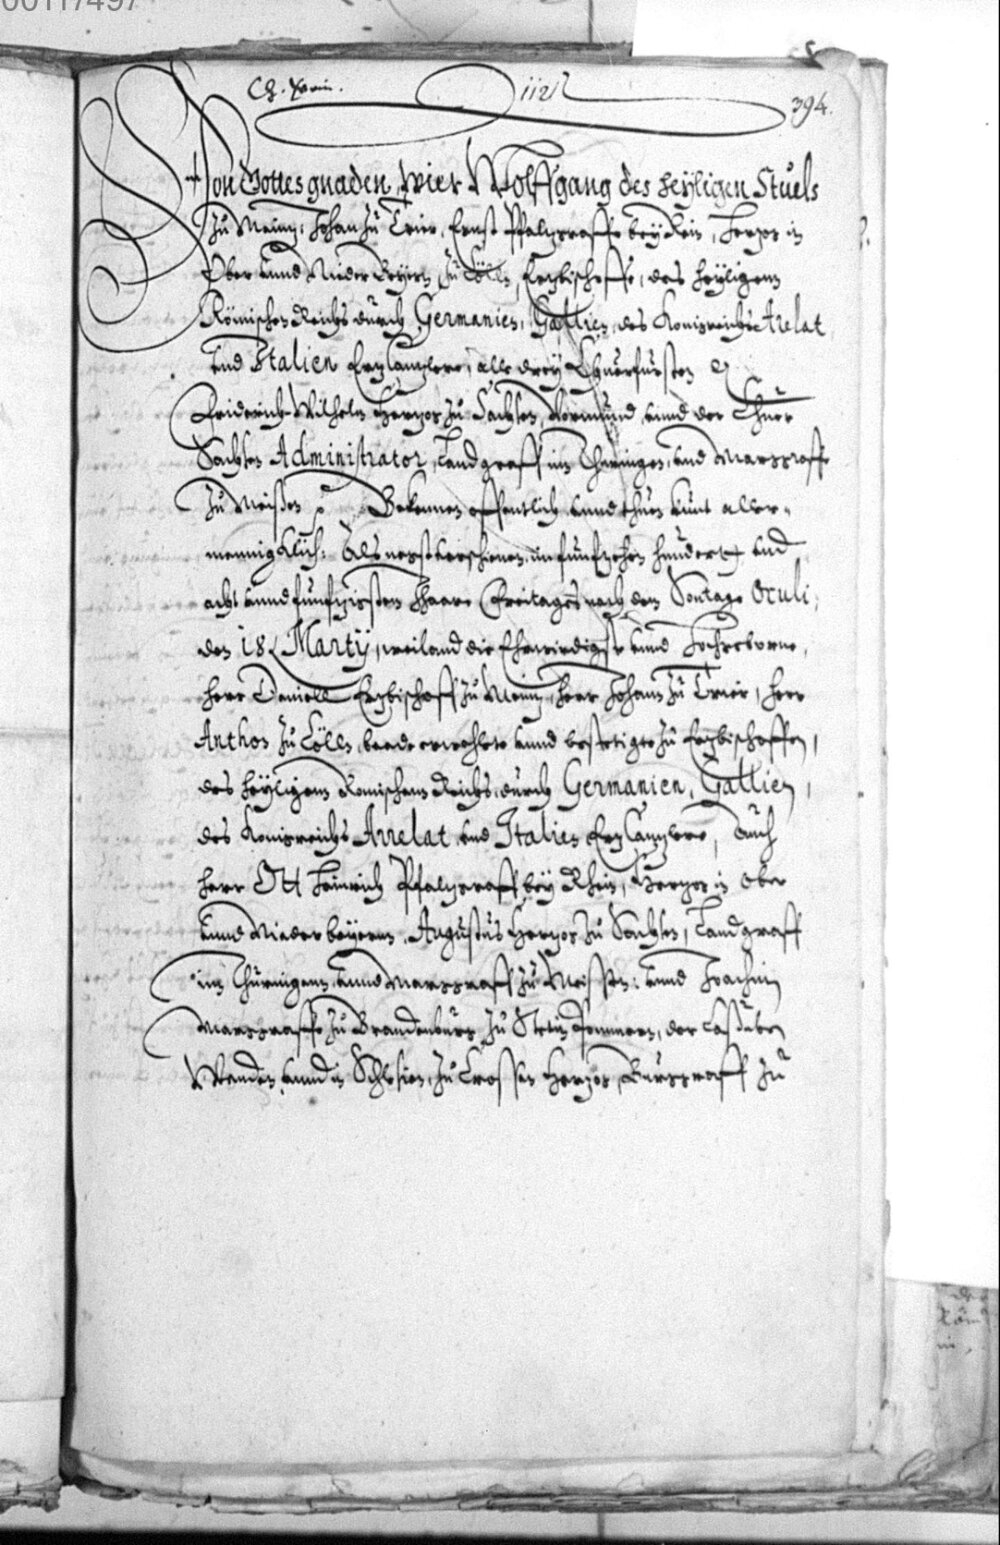 00117497
394.
Von Gottes gnaden, Wier Wolffgang des heyligen Stuels
zu Meintz, Johan zu Trier, Ernst Pfaltzgraffe bey Rein, Hertzog in
Ober unnd Nieder Beyern, zu Cölln, Ertzbischoffe, des heyligen
Römischen Reichs durch Germanien, Gallien, des Konigreichs Arelat
und Italien Ertz Cantzlere, alle drey Chuerfürsten
Friderich Wilhelm Hertzog zu Sachsen, Vormund unnd der Chuer
Sachsen Administrator, Landgraff im Thuringen, und Marggraffe
zu Meissen Bekennen offentlich unnd thuen kunt aller-
mennigklich: Als negst verschienen, im funffzehen hundert und
acht unnd funfftzigsten Jhaare Freitages nach dem Sontage Oculi,
den 18. Martij, weiland die Ehrwirdigste unnd Hochgeborne,
herr Daniell Ertzbischoff zu Meintz, herr Johann zu Trier, herr
Anthon zu Cölln, beede erwehlete unnd bestetigte zu Ertzbischoffen,
des heyligenn Romischenn Reichs, durch Germanien, Gallien,
des Konigreichs Arrelat und Italien Ertz Cantzlere, Auch
herr Ott Heinrich Pfaltzgraff bey Rhein, Hertzog in Ober
unnd Nieder beyernn, Augustus Hertzog zu Sachsen, Landgraff
inn Thüringenn, unnd Marggraff zu Meissen: unnd Joachim
Marggraffe zu Brandenburg, zu Stetin Pommern, der Cassuben
Wenden unnd in Schlesien, zu Crossen Hertzog, Burggraff zu